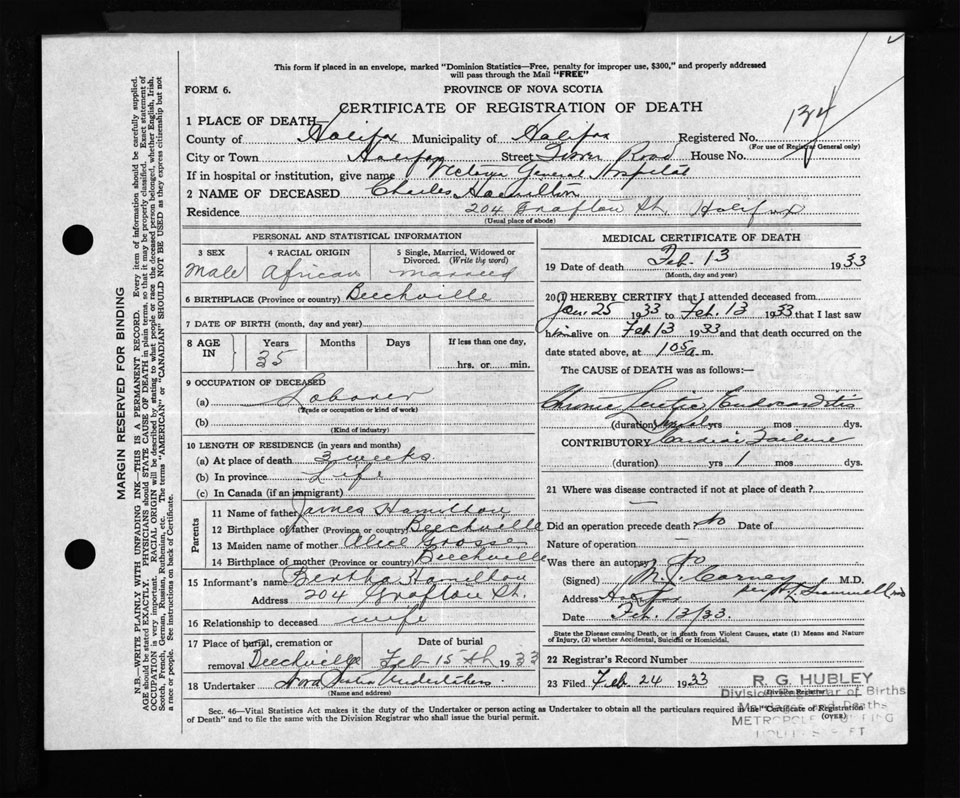 This form if placed in an envelope, marked "Dominion Statistics—Free, penalty for improper use, $300," and properly addressed
will pass through the Mail "FREE"
FORM 6. PROVINCE OF NOVA SCOTIA
CERTIFICATE OF REGISTRATION OF DEATH
134
1 PLACE OF DEATH
County of Halifax Municipality of Halifax Registered No.
(For use of Registrar General only)
City or Town Halifax Street Tower Road House No.
If in hospital or institution, give name Victoria General Hospital
2 NAME OF DECEASED Charles Hamilton
Residence 204 Grafton St. Halifax
(Usual place of abode)
PERSONAL AND STATISTICAL INFORMATION
3 SEX 4 RACIAL ORIGIN 5 Single, Married, Widowed or
Divorced. (Write the word)
Male African Married
6 BIRTHPLACE (Province or country) Beechville
7 DATE OF BIRTH (month, day and year)
8 AGE IN Years Months Days If less than one day,
35 hrs. or min.
9 OCCUPATION OF DECEASED
(a) Laborer
(Trade or occupation or kind of work)
(b)
(Kind of industry)
10 LENGTH OF RESIDENCE (in years and months)
(a) At place of death 3 weeks.
(b) In province Life
(c) In Canada (if an immigrant)
Parents
11 Name of father James Hamilton
12 Birthplace of father (Province or country) Beechville
13 Maiden name of mother Alice Grosse
14 Birthplace of mother (Province or country) Beechville
15 Informant's name Bertha Hamilton
Address 204 Grafton St.
16 Relationship to deceased wife
17 Place of burial, cremation or Date of burial
removal Beechville Feb 15th 1933
18 Undertaker Nova Scotia Undertakers
(Name and address)
MEDICAL CERTIFICATE OF DEATH
19 Date of death Feb. 13 1933
(Month, day and year)
20 I HEREBY CERTIFY that I attended deceased from
Jan. 25 1933 to Feb. 13 1933 that I last saw
him alive on Feb 13 1933 and that death occurred on the
date stated above, at 105 a.m.
The CAUSE of DEATH was as follows:—
Chronic Endocarditis
(duration) yrs mos dys.
CONTRIBUTORY Cardiac Failure
(duration) yrs 1 mos dys.
21 Where was disease contracted if not at place of death?
—
Did an operation precede death? No Date of
Nature of operation —
Was there an autopsy? No
(Signed) M.J. Carney M.D.
Address Halifax per
Date Feb. 13/33.
State the Disease causing Death, or in death from Violent Causes, state (1) Means and Nature
of Injury, (2) whether Accidental, Suicidal or Homicidal.
22 Registrar's Record Number
23 Filed Feb 24 1933
R. G. HUBLEY
Division Registrar of Births
Marriages and Deaths
(Division Registrar)
(OVER)
Sec. 46—Vital Statistics Act makes it the duty of the Undertaker or person acting as Undertaker to obtain all the particulars required in the "Certificate of Registration
of Death" and to file the same with the Division Registrar who shall issue the burial permit.
MARGIN RESERVED FOR BINDING
N.B.—WRITE PLAINLY WITH UNFADING INK—THIS IS A PERMANENT RECORD. Every item of information should be carefully supplied.
AGE should be stated EXACTLY. PHYSICIANS should STATE CAUSE OF DEATH in plain terms, so that it may be properly classified. Exact statement of
OCCUPATION is very important. RACIAL ORIGIN will be described by stating to what people or race the deceased person belonged, whether English, Irish,
Scotch, French, German, Russian, Ruthenian, etc. The terms "AMERICAN" or "CANADIAN" SHOULD NOT BE USED as they express citizenship but not
a race or people. See instructions on back of Certificate.